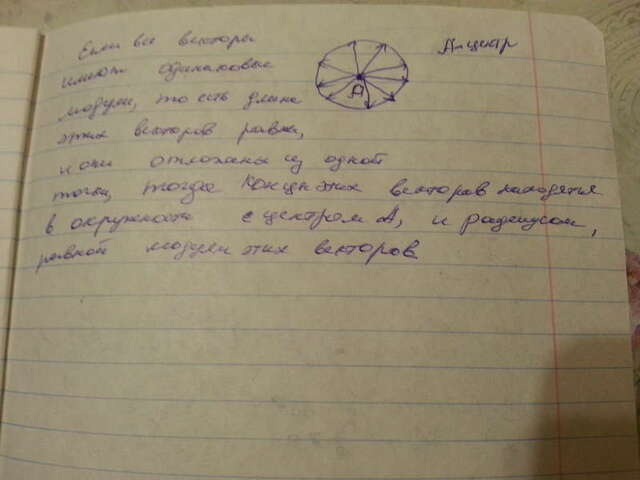 Если все векторы
А-центр
имеют одинаковые
А
модули, то есть длина
этих векторов равны,
и они отложаны из одной
точки, тогда концы этих векторов находятся
в окружности с центром А, и радиусом,
равной модулям этих векторов